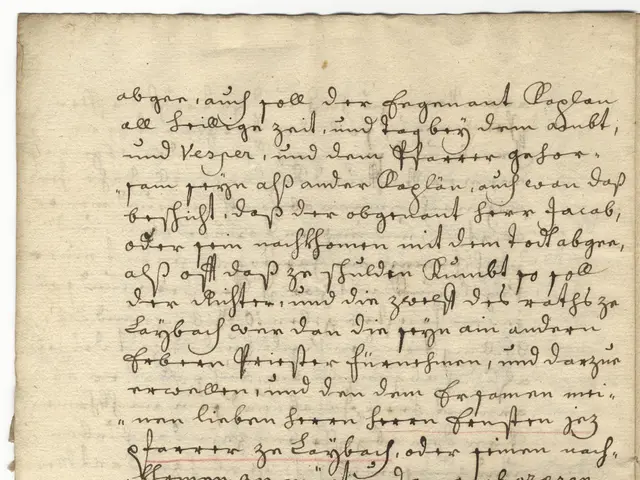 abgee, auch soll der Eegenant Kaplan
all heillige zeit, und tag bey dem ambt,
und Vesper, und dem Pfarrer gehor-
-sam seyn alß ander Kaplän, auch wan daß
beschicht, daß der obgenant herr Jacob,
oder sein nachkhomen mit dem Todt abgee,
alß offt daß ze schulden Kumbt so soll
der Richter, und die zwelff des raths ze
Laybach wer dan die seyn ain andern
Erbern Priester fürnehmen, und darzue
erwellen, und den dem Ersamen mei-
-nen lieben herrn herrn Ernsten jez
pfarrer ze Laybach, oder seinen nach-